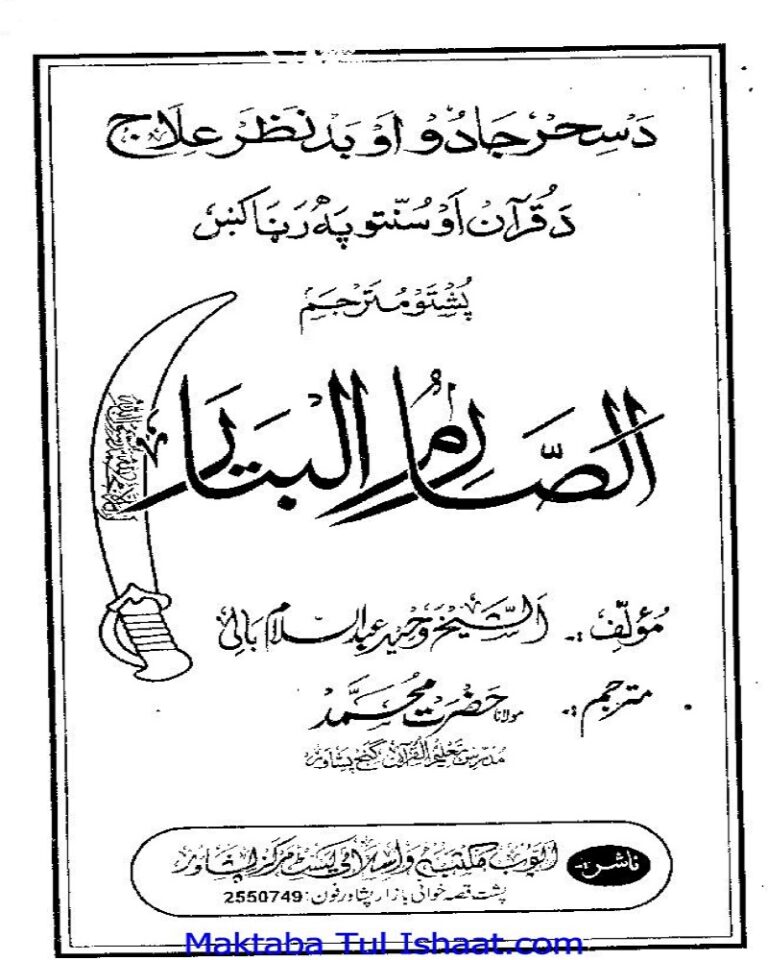 دَسِحْرْ جَادُوْ اَوْ بَدْ نَظَرْ عِلَاجْ
دَ قُرْآنْ اَوْ سُنّتو پَهْ رَنْرَا كښِ
پُشْتَوْ مُتَرْجَمْ
اَلصَّارِمُ الْبَتَّارْ
مُؤلّف :۔ اَلشَّيْخْ وَحِيْدْ عَبْدُ السَّلَامْ بَالِىْ
مترجم :۔ مولانا حَضْرَتْ مُحَمَّدْ
مُدَرِّس تَعْلِيْمُ الْقُرْآنْ گَنْجْ پَشَاوَرْ
ناشر :۔ ايوب مكتبه و اسلامى كيسٹ مركز پشاور
پشت قصہ خوانی بازار پشاور فون: 2550749
Maktaba Tul Ishaat.com